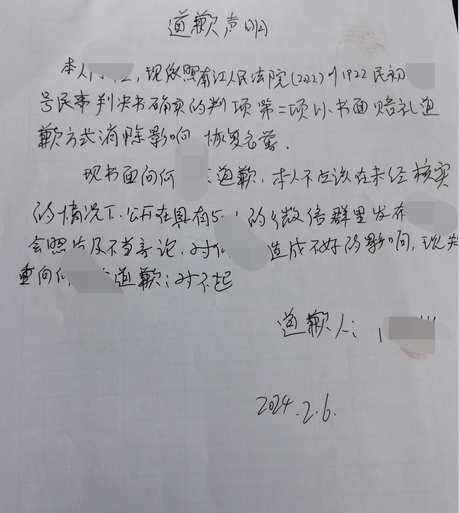 道歉声明
本人 ,现依照南江人民法院(2022)川1922民初
号民事判决书确实的判项第二项以书面赔礼道
歉方式消除影响 恢复名誉.
现书面向何 道歉,本人不应该在未经核实
的情况下.公开在具有5 的微信群里发布
会照片及不当言论.对何 造成不好的影响,现
重向何 道歉:对不起
道歉人:
2024.2.6.